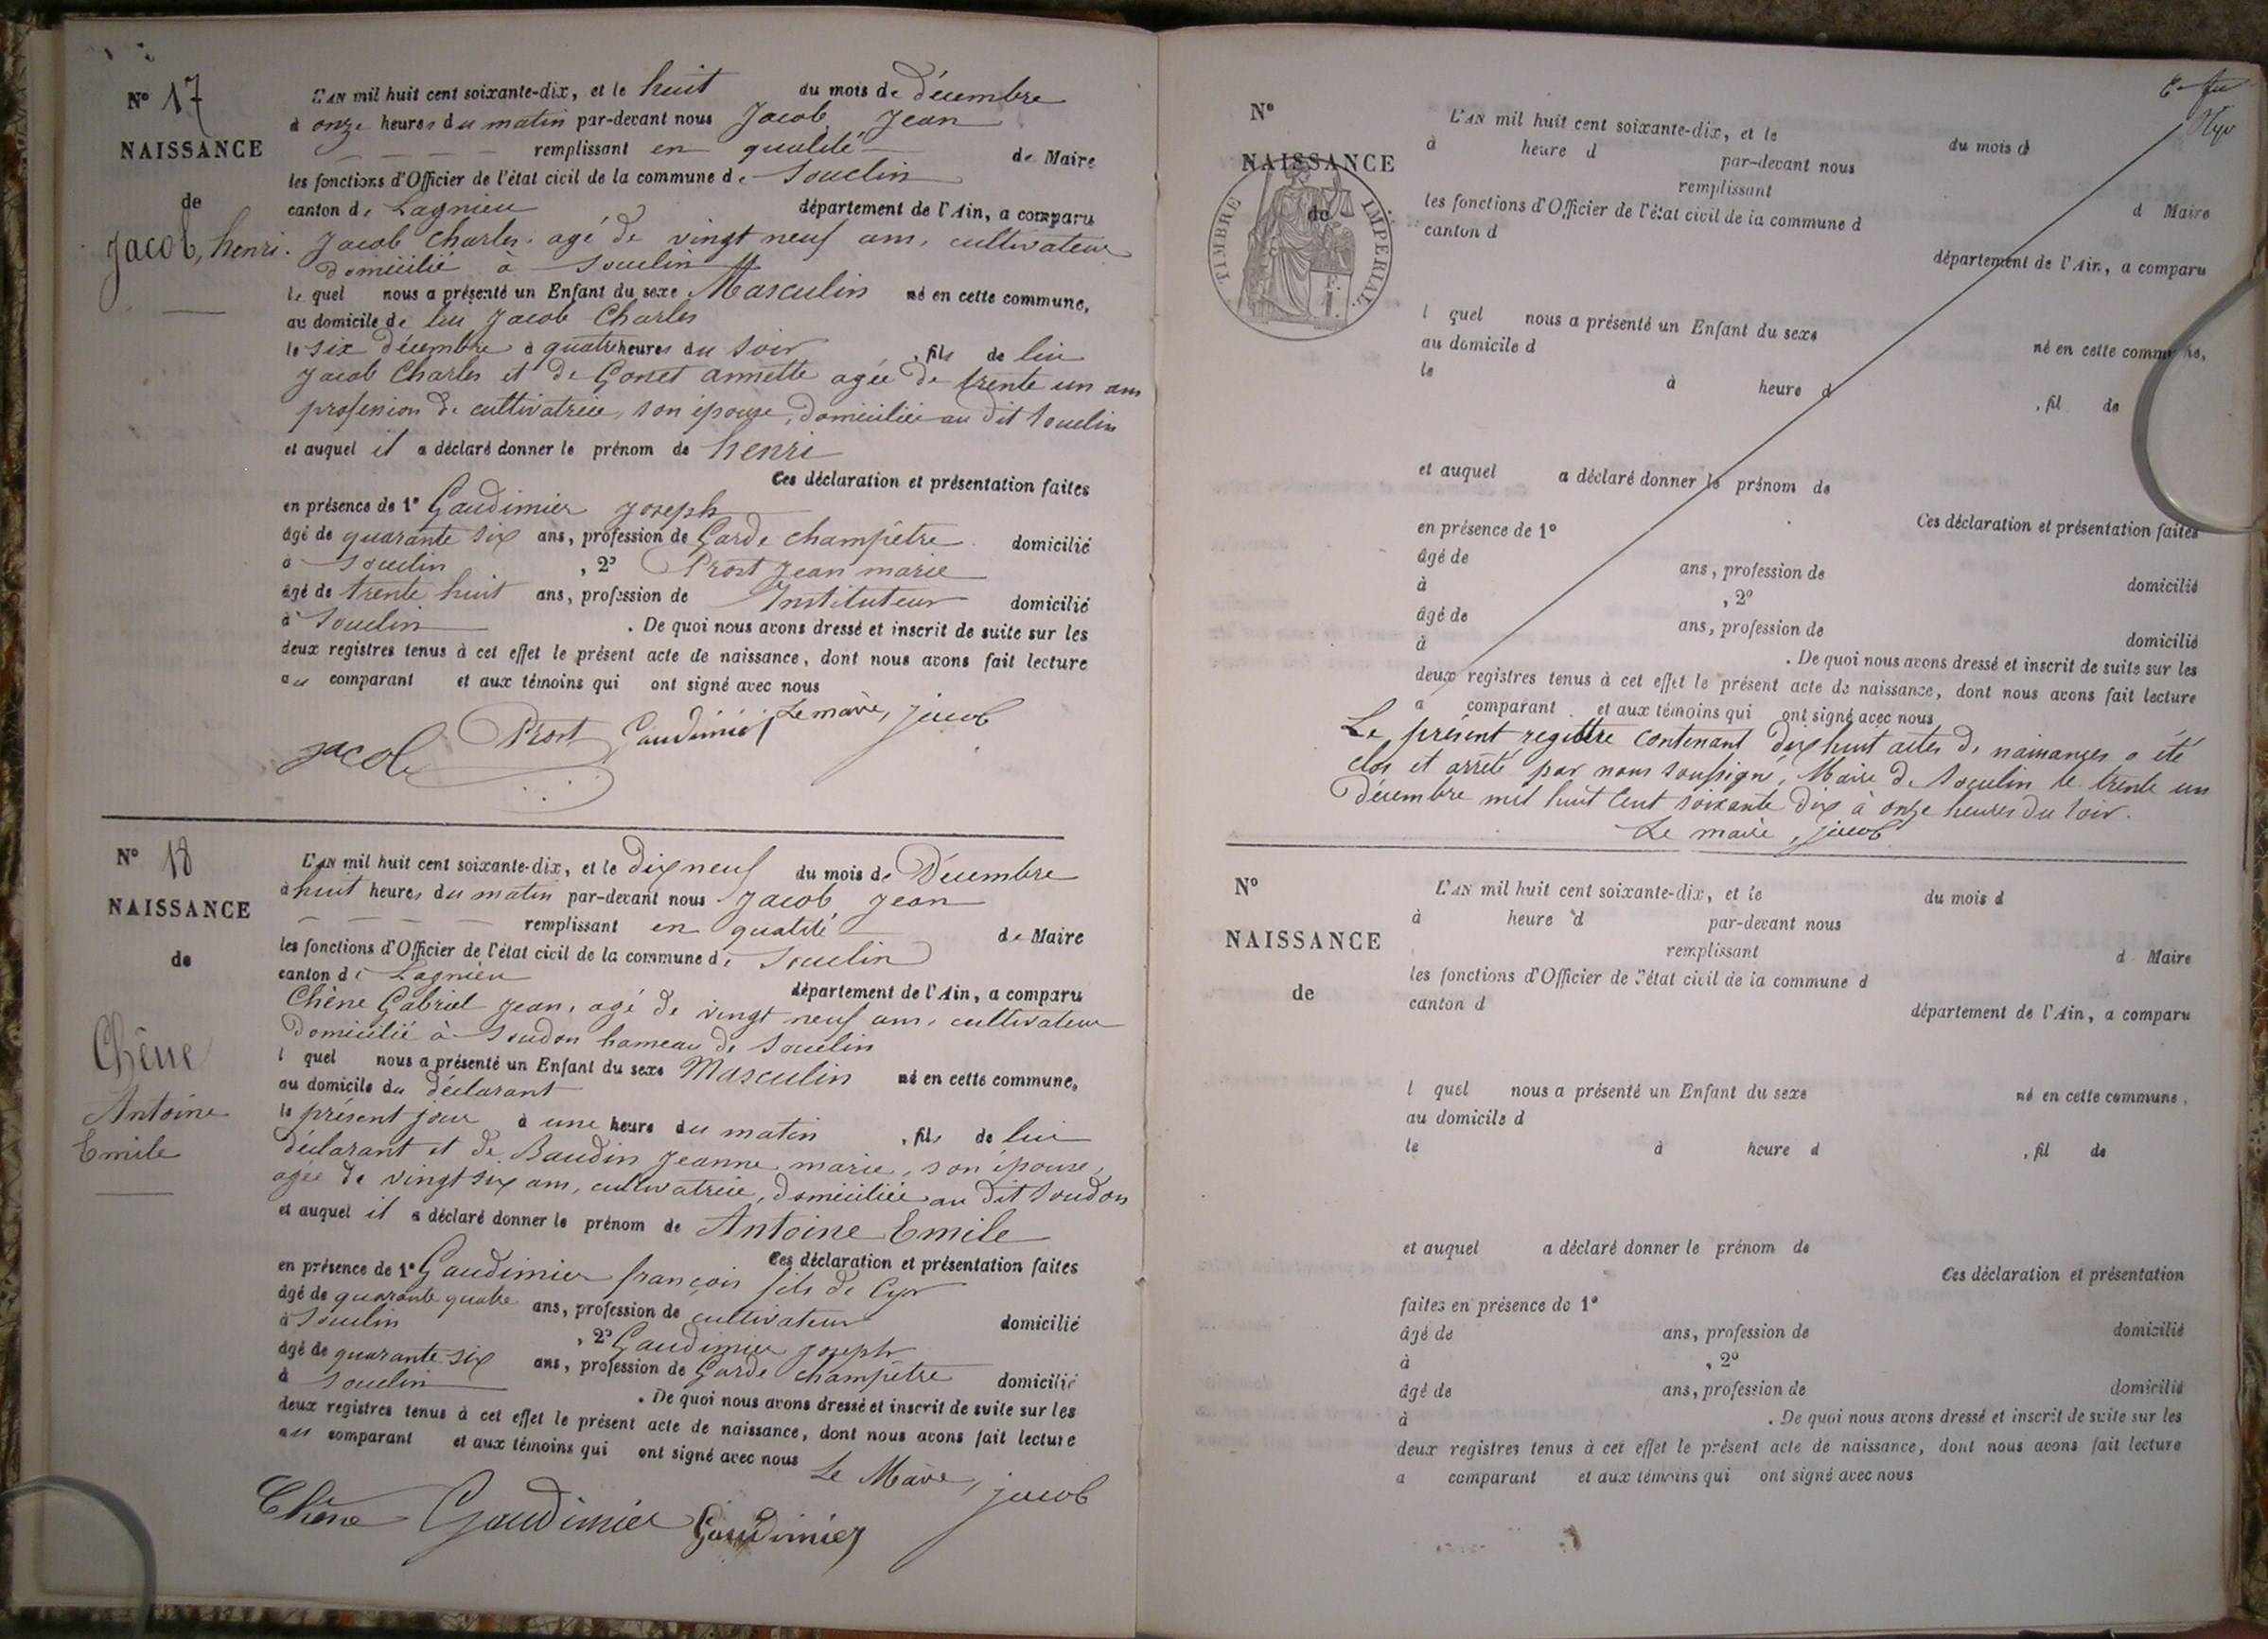 N° 17
NAISSANCE
de
Jacob, henri.
L'AN mil huit cent soixante-dix, et le huit du mois de décembre
à onze heures du matin par-devant nous Jacob Jean
remplissant en qualité de Maire
les fonctions d'Officier de l'état civil de la commune de Souclin
canton de Lagnieu département de l'Ain, a comparu
Jacob Charles, agé de vingt neuf ans, cultivateur
domicilié à Souclin
lequel nous a présenté un Enfant du sexe Masculin né en cette commune,
au domicile de lui Jacob Charles
le six décembre à quatre heures du soir, fils de lui
Jacob Charles et de Gonet annette agée de trente un ans
profession de cultivatrice, son épouse, domiciliée au dit Souclin
et auquel il a déclaré donner le prénom de henri
Ces déclaration et présentation faites
en présence de 1° Gaudimier joseph
âgé de quarante six ans, profession de Garde champêtre domicilié
à Souclin, 2° Prost Jean marie
âgé de trente huit ans, profession de Instituteur domicilié
à Souclin. De quoi nous avons dressé et inscrit de suite sur les
deux registres tenus à cet effet le présent acte de naissance, dont nous avons fait lecture
au comparant et aux témoins qui ont signé avec nous
Le maire, jacob
jacob Prost Gaudimier
N° 18
NAISSANCE
de
Chêne
Antoine
Emile
L'AN mil huit cent soixante-dix, et le dix neuf du mois de Décembre
à huit heures du matin par-devant nous Jacob Jean
remplissant en qualité de Maire
les fonctions d'Officier de l'état civil de la commune de Souclin
canton de Lagnieu département de l'Ain, a comparu
Chêne Gabriel Jean, agé de vingt neuf ans, cultivateur
domicilié à Soudon hameau de Souclin
l quel nous a présenté un Enfant du sexe Masculin né en cette commune,
au domicile du déclarant
le présent jour à une heure du matin, fils de lui
déclarant et de Baudin Jeanne marie, son épouse,
agée de vingt six ans, cultivatrice, domiciliée au dit Soudon
et auquel il a déclaré donner le prénom de Antoine Emile
Ces déclaration et présentation faites
en présence de 1° Gaudimier françois fils de Cyr
âgé de quarante quatre ans, profession de cultivateur domicilié
à Souclin, 2° Gaudimier joseph
âgé de quarante six ans, profession de Garde champêtre domicilié
à Souclin. De quoi nous avons dressé et inscrit de suite sur les
deux registres tenus à cet effet le présent acte de naissance, dont nous avons fait lecture
au comparant et aux témoins qui ont signé avec nous
Le Maire, jacob
Chêne Gaudimier Gaudimier
N°
NAISSANCE
de
TIMBRE IMPÉRIAL
L'AN mil huit cent soixante-dix, et le du mois d
à heure d par-devant nous
remplissant d Maire
les fonctions d'Officier de l'état civil de la commune d
canton d département de l'Ain, a comparu
l quel nous a présenté un Enfant du sexe né en cette commune,
au domicile d
le à heure d, fil de
et auquel a déclaré donner le prénom de
Ces déclaration et présentation faites
en présence de 1°
âgé de ans, profession de domicilié
à, 2°
âgé de ans, profession de domicilié
à. De quoi nous avons dressé et inscrit de suite sur les
deux registres tenus à cet effet le présent acte de naissance, dont nous avons fait lecture
a comparant et aux témoins qui ont signé avec nous
Le présent registre contenant dix huit actes de naissances a été
clos et arrêté par nous soussigné, Maire de Souclin le trente un
Décembre mil huit cent soixante dix à onze heures du soir.
Le maire, jacob
N°
NAISSANCE
de
L'AN mil huit cent soixante-dix, et le du mois d
à heure d par-devant nous
remplissant d Maire
les fonctions d'Officier de l'état civil de la commune d
canton d département de l'Ain, a comparu
l quel nous a présenté un Enfant du sexe né en cette commune,
au domicile d
le à heure d, fil de
et auquel a déclaré donner le prénom de
Ces déclaration et présentation
faites en présence de 1°
âgé de ans, profession de domicilié
à, 2°
âgé de ans, profession de domicilié
à. De quoi nous avons dressé et inscrit de suite sur les
deux registres tenus à cet effet le présent acte de naissance, dont nous avons fait lecture
a comparant et aux témoins qui ont signé avec nous